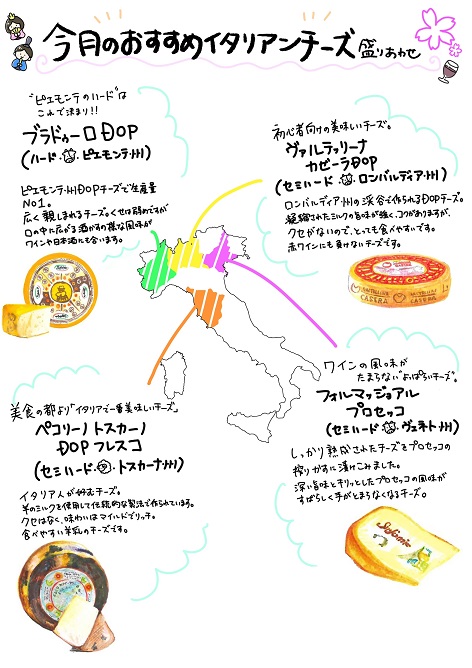 今月のおすすめイタリアンチーズ 盛りあわせ
"ピエモンテのハード"は
これで決まり!!
ブラドゥーロDOP
(ハード・ピエモンテ州)
ピエモンテ州DOPチーズで生産量
No1。
広く親しまれるチーズ。くせは弱めですが
口の中に広がる酒かすの様な風味が
ワインや日本酒にも合います。
初心者向けの美味しいチーズ。
ヴァルテッリーナ
カゼーラDOP
(セミハード・ロンバルディア州)
ロンバルディア州の渓谷で作られるDOPチーズ。
凝縮されたミルクの旨味が強く、コクがありますが、
クセがないので、とっても食べやすいです。
赤ワインにも負けないチーズです。
CASERA
美食の都より「イタリアで一番美味しいチーズ」
ペコリーノ トスカーノ
DOP フレスコ
(セミハード・トスカーナ州)
イタリア人が好むチーズ。
羊のミルクを使用して伝統的な製法で作られています。
クセはなく、味わいはマイルドでリッチ。
食べやすい羊乳のチーズです。
ワインの風味が
たまらない"よっぱらいチーズ"。
フォルマッジョアル
プロセッコ
(セミハード・ヴェネト州)
しっかり熟成されたチーズをプロセッコの
搾りかすに漬けこみました。
深い旨味とキリッとしたプロセッコの風味が
すばらしく手がとまらなくなるチーズ。